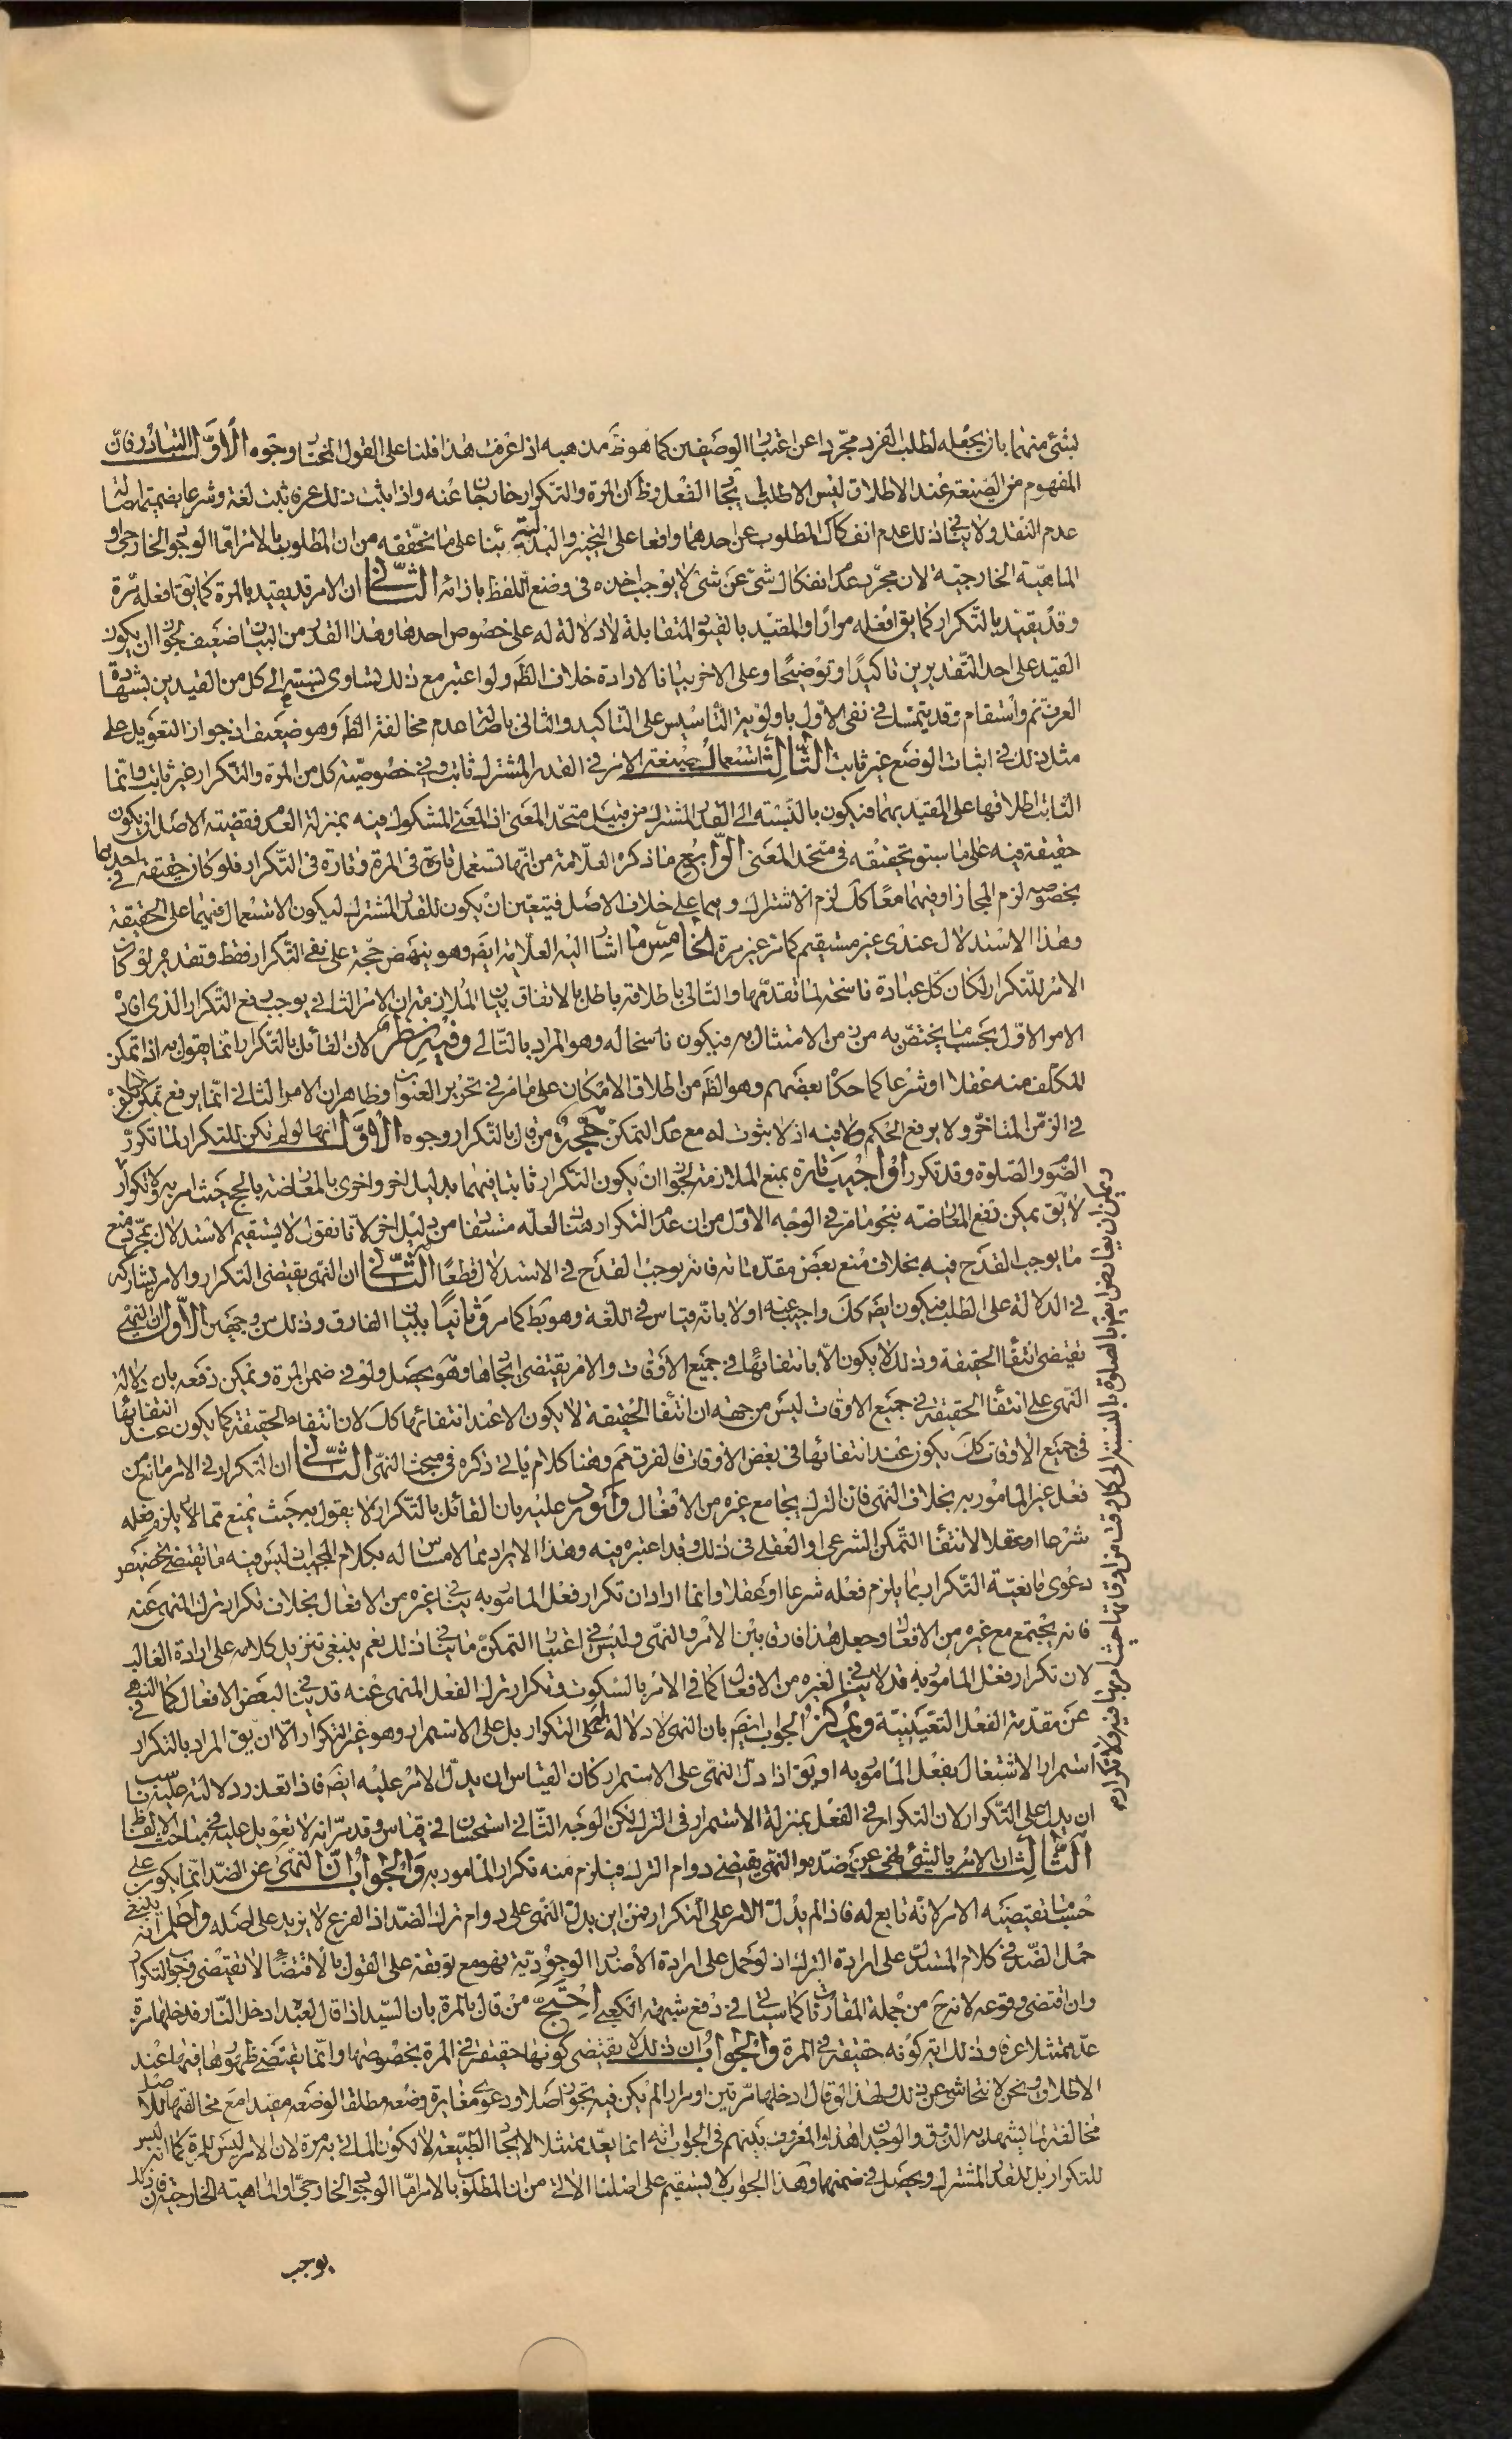 بشئ منهما بان يجعله لطلب الفرد مجردا عن اعتبار الوصفين كما هو ظ مذهبه اذا عرفت هذا فلنا على القول المختار وجوه الاوّل التبادر فان
المفهوم من الصّيغة عند الاطلاق ليس الا طلب ايجاد الفعل وظ ان المرة والتكرار خارجان عنه واذا ثبت ذلك عرفا ثبت لغة وشرعا بضميمة اصالة
عدم النقل ولا ينافى ذلك عدم انفكاك المطلوب عن احدهما واقعا على التخيير والبدلية بناء على ما نحققه من ان المطلوب بالامر امّا الوجود الخارجى او
الماهيّة الخارجيّة لان مجرّد عدم انفكاك شئ عن شئ لا يوجب اخذه فى وضع اللفظ بازائه الثّانى ان الامر قد يقيد بالمرة كما يق افعله مرّة
وقد يقيد بالتّكرار كما يق افعله مرارا والمقيد بالقيود المتقابلة لا دلالة له على خصوص احدها وهذا القدر من البيان ضعيف لجواز ان يكون
القيد على احد التّقديرين تاكيدا وتوضيحا وعلى الاخر بيانا لارادة خلاف الظّ ولو اعتبر مع ذلك تساوى نسبته الى كل من القيدين بشهادة
العرف تم واستقام وقد يتمسّك فى نفى الاوّل باولوية التّأسيس على التاكيد والثانى باصالة عدم مخالفة الظّ وهو ضعيف اذ جواز التعويل على
مثل ذلك فى اثبات الوضع غير ثابت الثّالث استعمال صيغة الامر فى القدر المشترك ثابت وفى خصوصيّة كل من المرة والتّكرار غير ثابت وانّما
الثابت اطلاقها على المقيد بهما فيكون بالنّسبة الى القدر المشترك من قبيل متحد المعنى اذ المعنى المشكوك فيه بمنزلة العدم فقضية الاصل ان يكون
حقيقة فيه على ما سبق تحقيقه فى متحد المعنى الرّابع ما ذكره العلّامة من انّها تستعمل تارة فى المرة وتارة فى التّكرار فلو كان حقيقة فى احدهما
بخصوصه لزم المجاز او فيهما معا كك لزم الاشتراك وهما على خلاف الاصل فيتعين ان يكون للقدر المشترك ليكون الاستعمال فيهما على الحقيقة
وهذا الاستدلال عندى غير مستقيم كما مر غير مرة الخامس ما اشار اليه العلّامة ايضا وهو ينهض حجّة على نفى التّكرار فقط وتقديره لو كان
الامر للتّكرار لكان كلّ عبادة ناسخة لما تقدّمها والتّالى باطلاقه باطل بالاتفاق بيان الملازمة ان الامر الثانى يوجب رفع التّكرار الذى افاده
الامر الاوّل بحسب ما يختصّ به من زمن الامتثال به فيكون ناسخا له وهو المراد بالتالى وفيه نظر لان القائل بالتّكرار انّما يقول به اذا تمكن
المكلف منه عقلا او شرعا كما حكاه بعضهم وهو الظّ من اطلاق الامكان على ما مر فى تحرير العنوان وظاهر ان الامر الثانى انّما يرفع تمكن المكلف
فى الزّمن المتاخّر ولا يرفع الحكم فيه اذ لا ثبوت له مع عدم التمكن حجّة من قال بالتّكرار وجوه الاوّل انها لو لم تكن للتّكرار لما تكرّر
الصّوم والصّلوة وقد تكررا واجيب تارة بمنع الملازمة لجواز ان يكون التّكرار ثابتا فيهما بدليل اخر واخرى بالمعارضة بالحج حيث امر به ولا تكرار
لا يق يمكن دفع المعارضة بنحو ما مر فى الوجه الاوّل من ان عدم التّكرار هناك لعله مستفاد من دليل اخر لانا نقول لا يستقيم الاستدلال بمجرّد منع
ما يوجب القدح فيه بخلاف منع بعض مقدّماته فانه يوجب القدح فى الاستدلال قطعًا الثّانى ان النّهى يقتضى التكرار والامر يشاركه
فى الدلالة على الطلب فيكون ايضا كك واجيب عنه اولا بانّه قياس فى اللّغة وهو بط كما مر وثانيًا ببيان الفارق وذلك من وجهين الاوّل ان النّهى
يقتضى انتفاء الحقيقة وذلك لا يكون الّا بانتفائها فى جميع الاوقات والامر يقتضى ايجادها وهو يحصل ولو فى ضمن المرة ويمكن دفعه بان دلالة
النّهى على انتفاء الحقيقة فى جميع الاوقات ليس من جهة ان انتفاء الحقيقة لا يكون الا عند انتفائها كك لان انتفاء الحقيقة كما يكون عند انتفائها
فى جميع الاوقات كك يكون عند انتفائها فى بعض الاوقات فالفرق تحكم وهنا كلام ياتى ذكره فى مبحث النّهى الثّانى ان التّكرار فى الامر مانع من
فعل غير المامور به بخلاف النّهى فان الترك يجامع غيره من الافعال واورد عليه بان القائل بالتّكرار لا يقول به حيث يمنع ممّا لا يلزم فعله
شرعا او عقلا لانتفاء التّمكن الشرعى او العقلى فى ذلك وقد اعتبره فيه وهذا الايراد ممّا لا مساس له بكلام المجيب اذ ليس فيه ما يقتضى تخصيص
دعوى مانعيّة التّكرار بما يلزم فعله شرعا او عقلا وانما اراد ان تكرار فعل المامور به ينافى غيره من الافعال بخلاف تكرار ترك المنهى عنه
فانه يجتمع مع غيره من الافعال وجعل هذا فارقا بين الامر والنّهى وليس فى اعتبار التمكن ما ينافى ذلك نعم ينبغى تنزيل كلامه على ارادة الغالب
لان تكرار فعل المامور به قد لا ينافى لغيره من الافعال كما فى الامر بالسكوت وتكرار ترك الفعل المنهى عنه قد ينافى لبعض الافعال كما فى النهى
عن مقدمة الفعل التعيينية ويمكن الجواب ايضا بان النهى لا دلالة له على التكرار بل على الاستمرار وهو غير التّكرار الّا ان يق المراد بالتكرار
استمرار الاشتغال بفعل المامور به او يق اذا دل النهى على الاستمرار كان القياس ان يدلّ الامر عليه ايضا فاذا تعذر دلالته عليه ناسب
ان يدل على التّكرار لان التكرار فى الفعل بمنزلة الاستمرار فى الترك لكن الوجه الثّانى استحسان فى قياس وقد مرّ انه لا تعويل عليه فى مباحث الالفاظ
الثّالث ان الامر بالشئ نهى عن ضدّه والنّهى يقتضى دوام الترك فيلزم منه تكرار المامور به والجواب انّ النّهى عن الضّد انّما يكون على
حسب ما يقتضيه الامر لانّه تابع له فاذا لم يدلّ الامر على التكرار فمن اين يدلّ النّهى على دوام ترك الضّد اذ الفرع لا يزيد على اصله واعلم انه ينبغى
حمل الضّد فى كلام المستدل على ارادة الترك اذ لو حمل على ارادة الاضداد الوجوديّة فهو مع توقفه على القول بالاقتضاء لا يقتضى وجوب التكرار
وان اقتضى وقوعه لا نرى من جملة المقارنات كما سياتى فى دفع شبهة الكعبى احتجّ من قال بالمرة بان السّيد اذا قال لعبده ادخل الدّار فدخلها مرة
عدّ ممتثلا عرفا وذلك اية كونه حقيقة فى المرة والجواب ان ذلك لا يقتضى كونها حقيقة فى المرة بخصوصها وانّما يقتضى ظهورها فيها عند
الاطلاق ونحن لا نتحاشى عن ذلك ولهذا لو قال ادخلها مرّتين او مرارا لم يكن فيه تجوّز اصلا ودعوى مغايرة وضعه مطلقا لوضعه مقيدا مع مخالفتها للاصل
مخالفة لما يشهد به الذّوق والوجدان هذا والمعروف بينهم فى الجواب انه انما يعدّ ممتثلا لايجاد الطّبيعة لا لكون الماتى به مرة لان الامر ليس للمرة كما انه ليس
للتكرار بل للقدر المشترك ويحصل فى ضمنهما وهذا الجواب لا يستقيم على اصلنا الاتى من ان المطلوب بالامر امّا الوجود الخارجى او الماهية الخارجية فان ذلك
يوجب